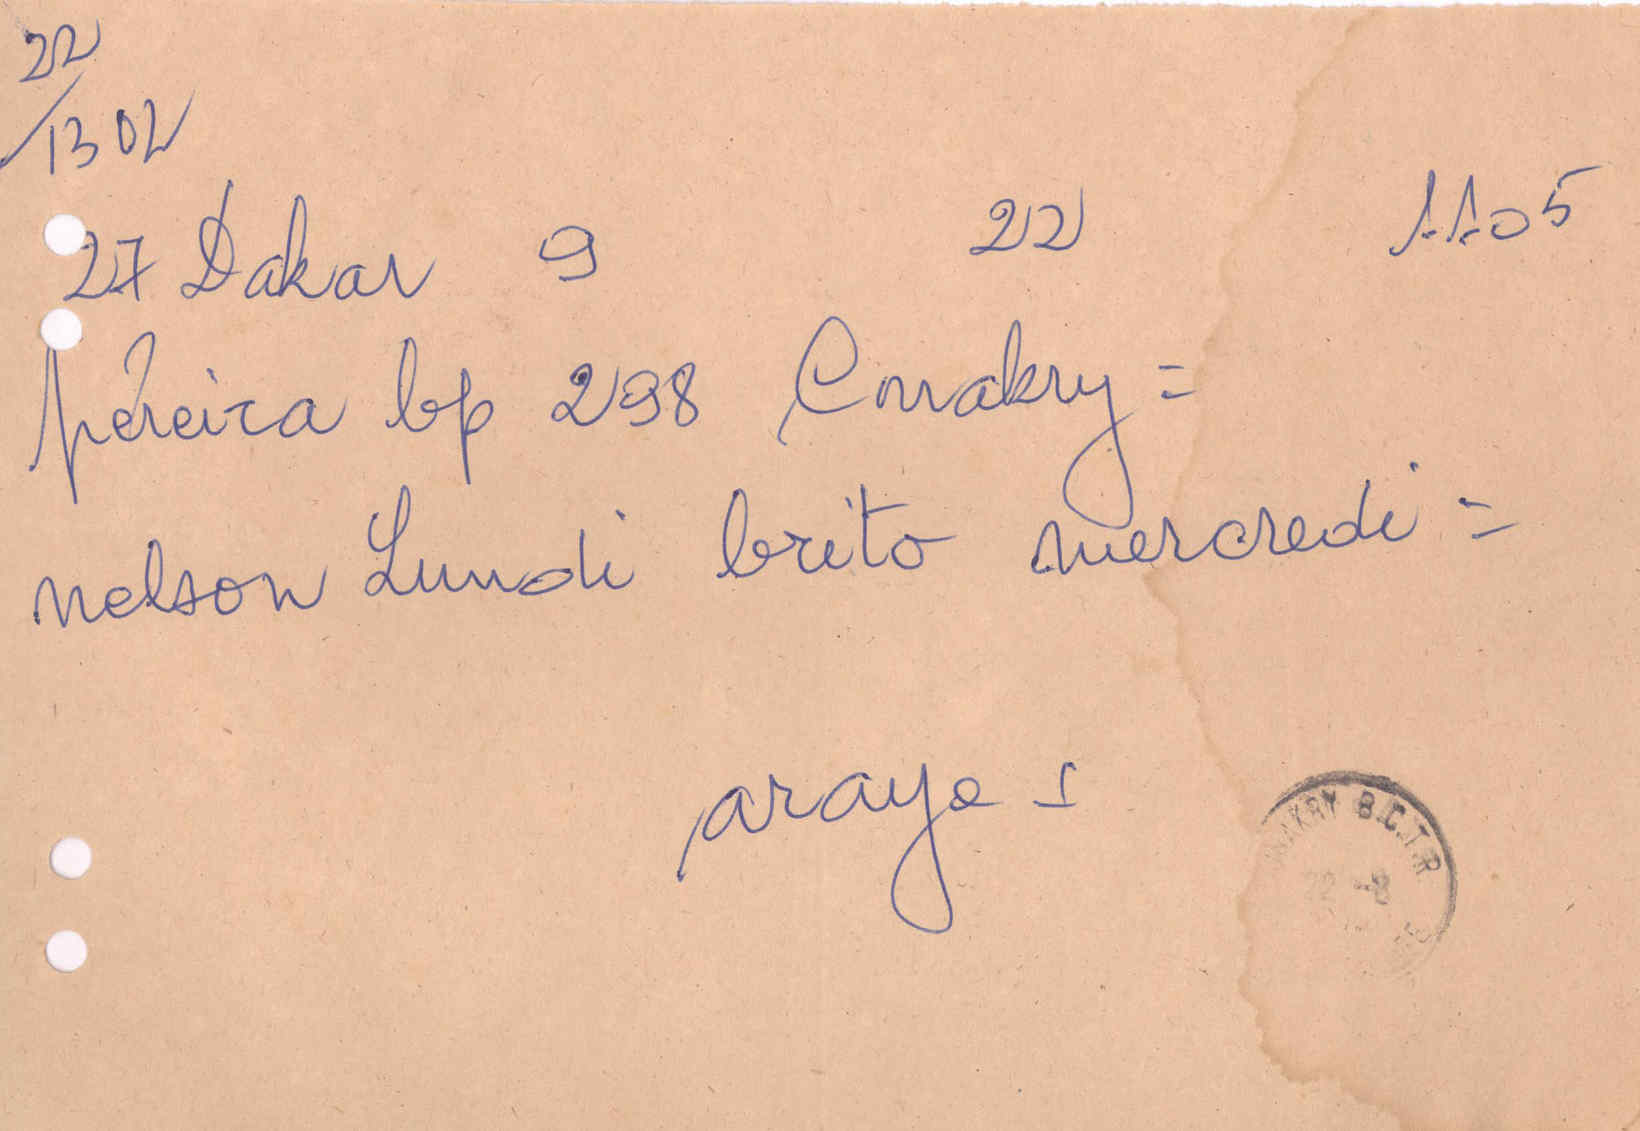 22
/1302
27 Dakar 9 22 1105
pereira bp 298 Conakry =
nelson Lundi brito mercredi =
arayo =
NAKRY B.C.T.R
22 -8